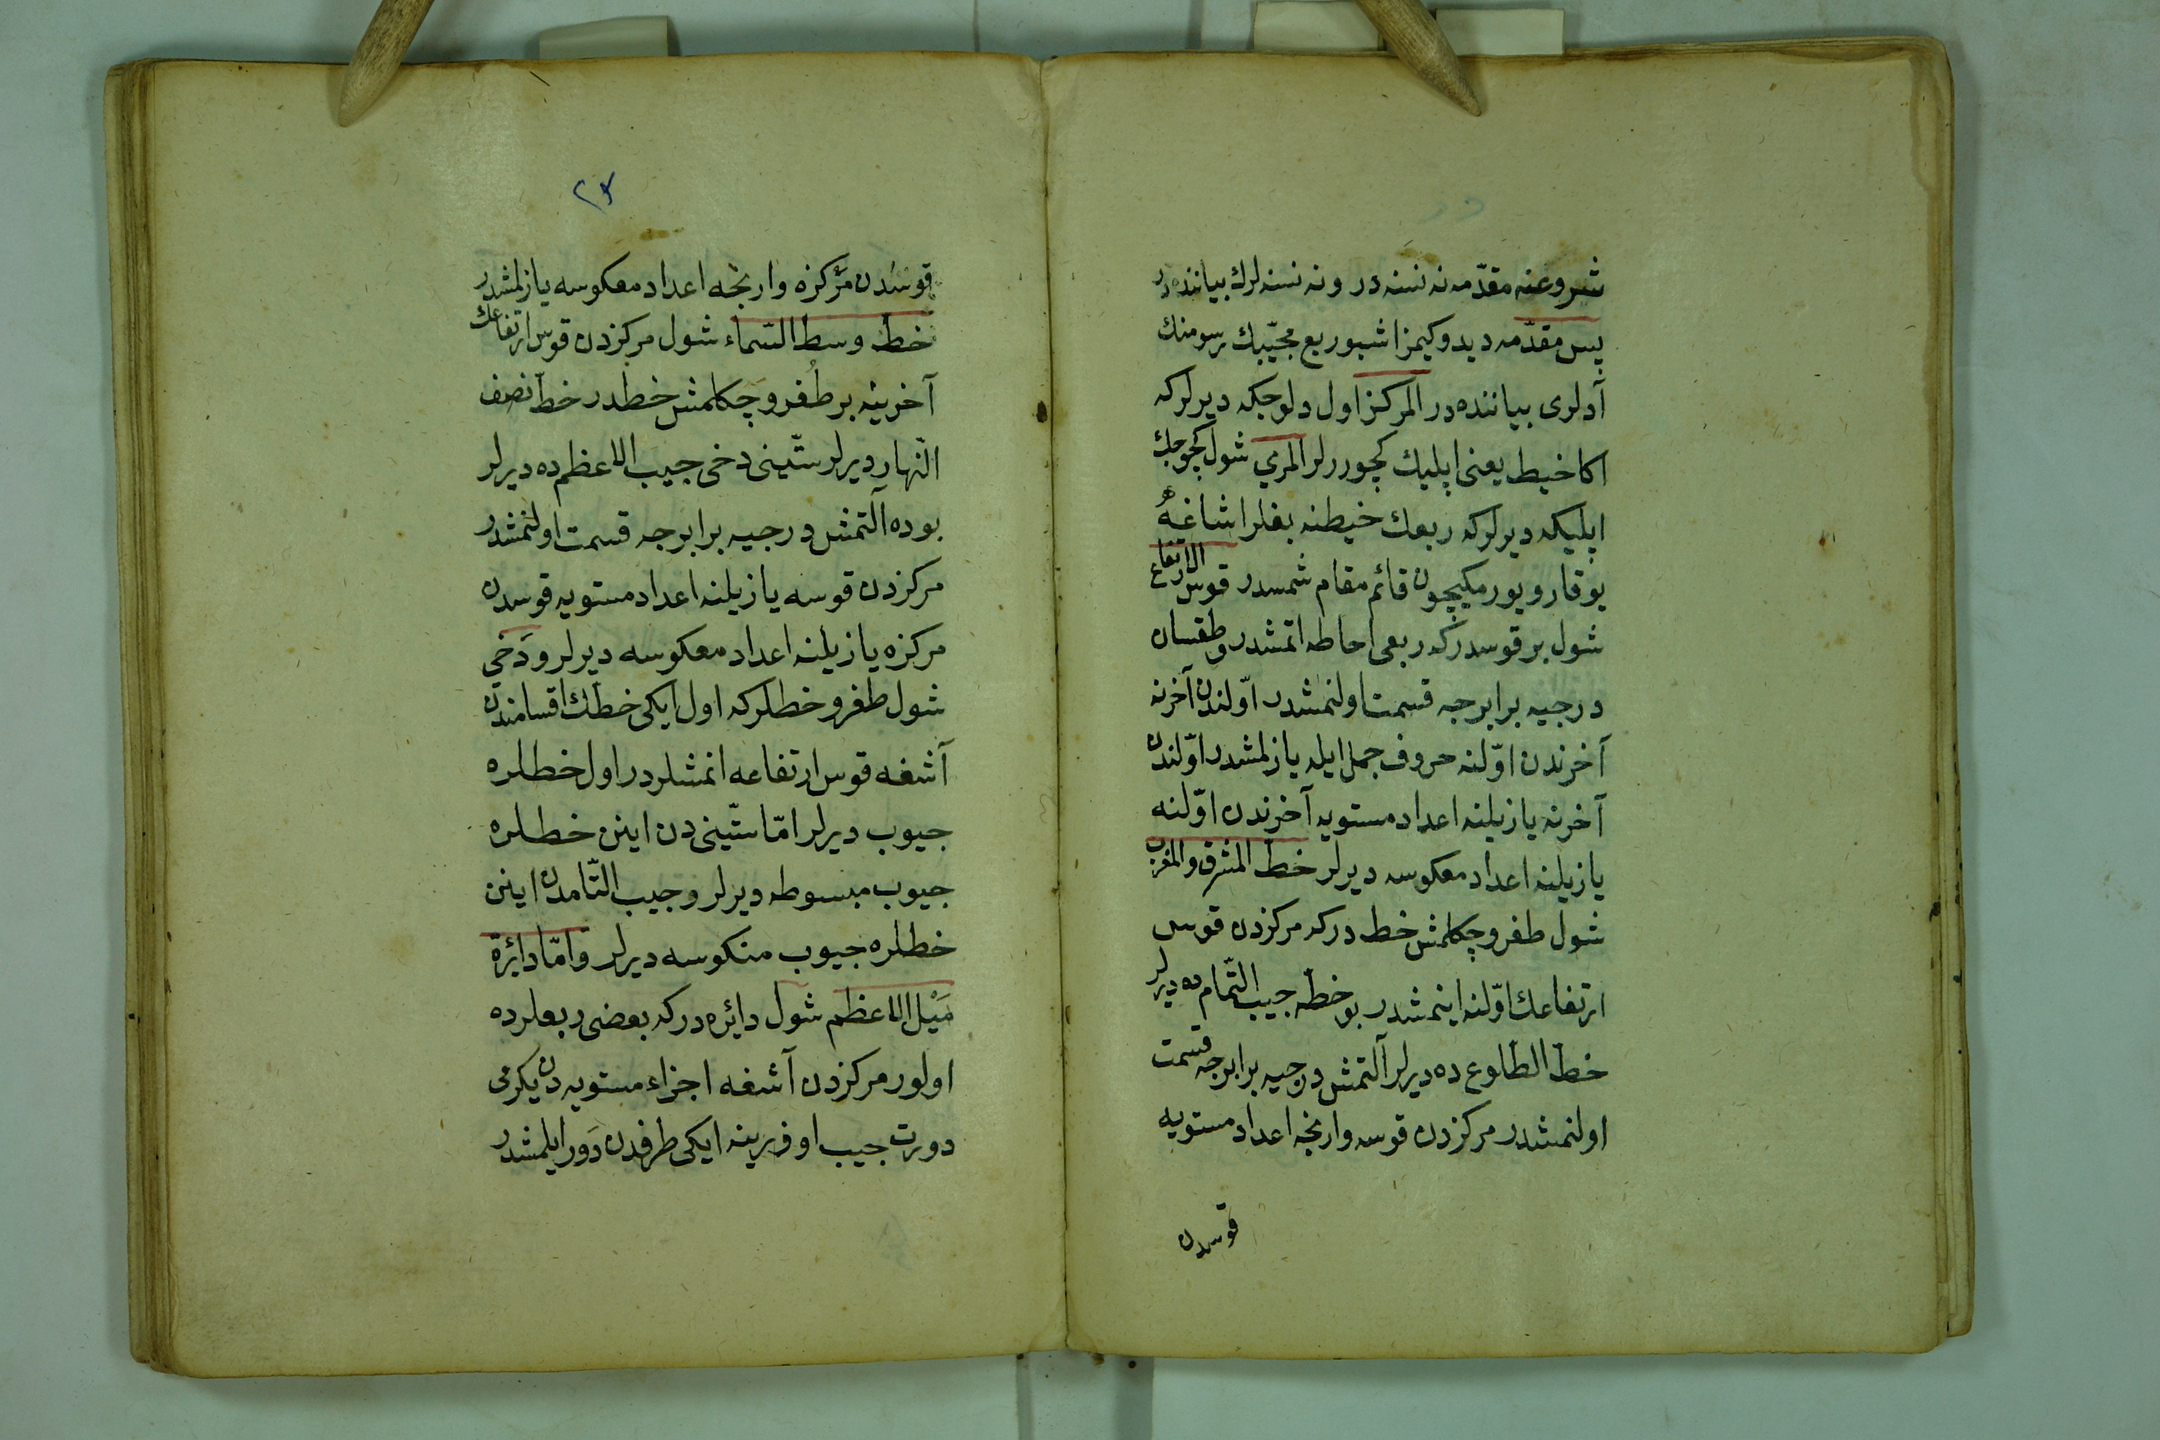 شروعنه مقدّمه نه نسنه در و نه نسنه لرك بياننده در
پس مقدّمه ديدوكيمز اشبو ربع مجيّبك رسومنك
آدلرى بياننده در المركز اول دلوجكه ديرلركه
اكا خيط يعنى ايپليك كچوررلر المري شول كچوجك
ايپليكه ديرلركه ربعك خيطنه بغلر اشاغه
يوقارو يورمكيچون قائم مقام شمسدر قوس الارتفاع
شول بر قوسدركه ربعى احاطه اتمشدر و طقسان
درجيه برابرجه قسمت اولنمشدر اوّلندن آخرنه
آخرندن اوّلنه حروف جمل ايله يازلمشدر اوّلندن
آخرنه يازيلنه اعداد مستويه آخرندن اوّلنه
يازيلنه اعداد معكوسه ديرلر خطّ المشرق والمغرب
شول طغرو چكلمش خط دركه مركزدن قوس
ارتفاعك اوّلنه اينمشدر بو خطه جيب التّمام ده ديرلر
خطّ الطلوع ده ديرلر آلتمش درجيه برابرجه قسمت
اولنمشدر مركزدن قوسه وارنجه اعداد مستويه
قوسدن
٢٣
قوسدن مركزه وارنجه اعداد معكوسه يازلمشدر
خطّ وسط السّماء شول مركزدن قوس ارتفاعك
آخرينه بر طغرو چكلمش خطدر خط نصف
النّهار ديرلر ستّينى دخى جيب الاعظم ده ديرلر
بوده آلتمش درجيه برابرجه قسمت اولنمشدر
مركزدن قوسه يازيلنه اعداد مستويه قوسدن
مركزه يازيلنه اعداد معكوسه ديرلر و دخي
شول طغرو خطلركه اول ايكى خطك اقسامندن
آشغه قوس ارتفاعه انمشلردر اول خطلره
جيوب ديرلر امّا ستّينى دن اينن خطلره
جيوب مبسوطه ديرلر و جيب التّامدن اينن
خطلره جيوب منكوسه ديرلر و امّا دائرة
ميل الاعظم شول دائره دركه بعضى ربعلرده
اولور مركزدن آشغه اجزاء مستويه دن يكرمى
دورت جيب اوزرينه ايكى طرفدن دور ايلمشدر